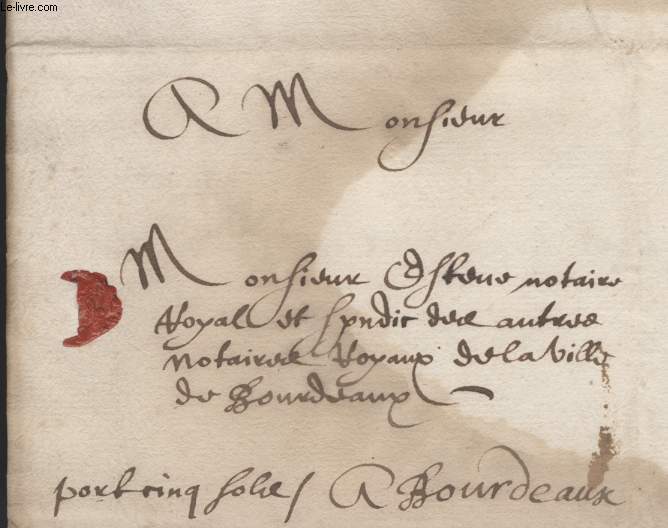 Le-livre.com
A Monsieur
Monsieur Esteue notaire
Royal et syndic des autres
notaires Royaux de la Ville
de Bourdeaux
port cinq sols / A Bourdeaux